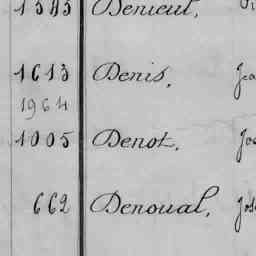 1343 Denieul,
1613 Denis,
1964
1005 Denot,
662 Denoual,